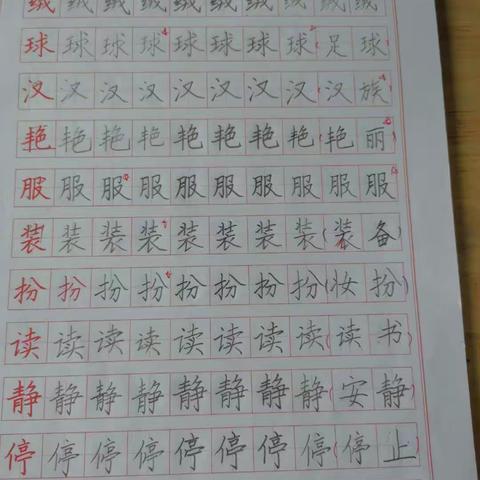 绒绒绒绒绒绒绒绒绒绒
球球球球球球球球(足球)
汉汉汉汉汉汉汉汉(汉族)
艳艳艳艳艳艳艳艳(艳丽)
服服服服服服服服服服
装装装装装装装装(装备)
扮扮扮扮扮扮扮扮(妆扮)
读读读读读读读读(读书)
静静静静静静静静(安静)
停停停停停停停停(停止)